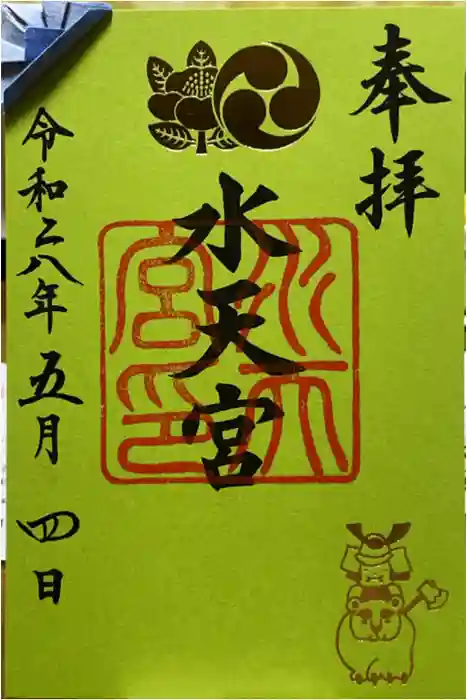 奉拝
水天宮
令和六年五月四日
水天
宮印